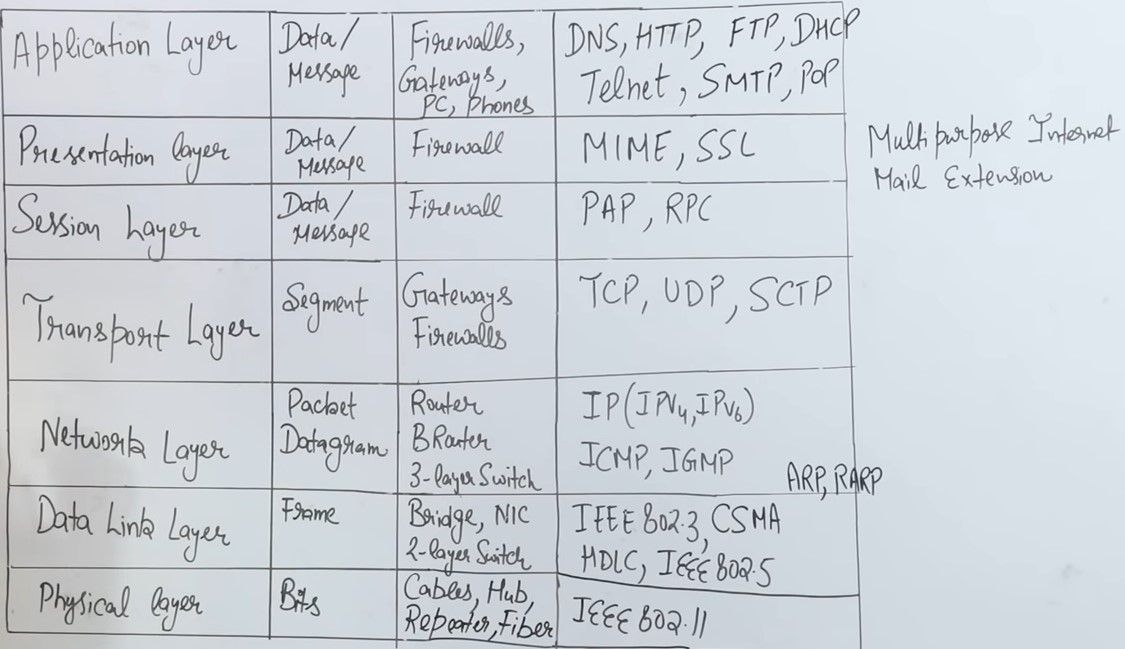 Application Layer
Data/
Message
Firewalls,
Gateways,
PC, Phones
DNS, HTTP, FTP, DHCP
Telnet, SMTP, POP
Presentation layer
Data/
Message
Firewall
MIME, SSL
Multipurpose Internet
Mail Extension
Session Layer
Data/
Message
Firewall
PAP, RPC
Transport Layer
Segment
Gateways
Firewalls
TCP, UDP, SCTP
Network Layer
Packet
Datagram
Router
BRouter
3-layer Switch
IP(IPV4,IPV6)
ICMP, IGMP
ARP, RARP
Data Link Layer
Frame
Bridge, NIC
2-layer Switch
IEEE 802.3, CSMA
HDLC, IEEE 802.5
Physical layer
Bits
Cables, Hub,
Repeater, Fiber
IEEE 802.11